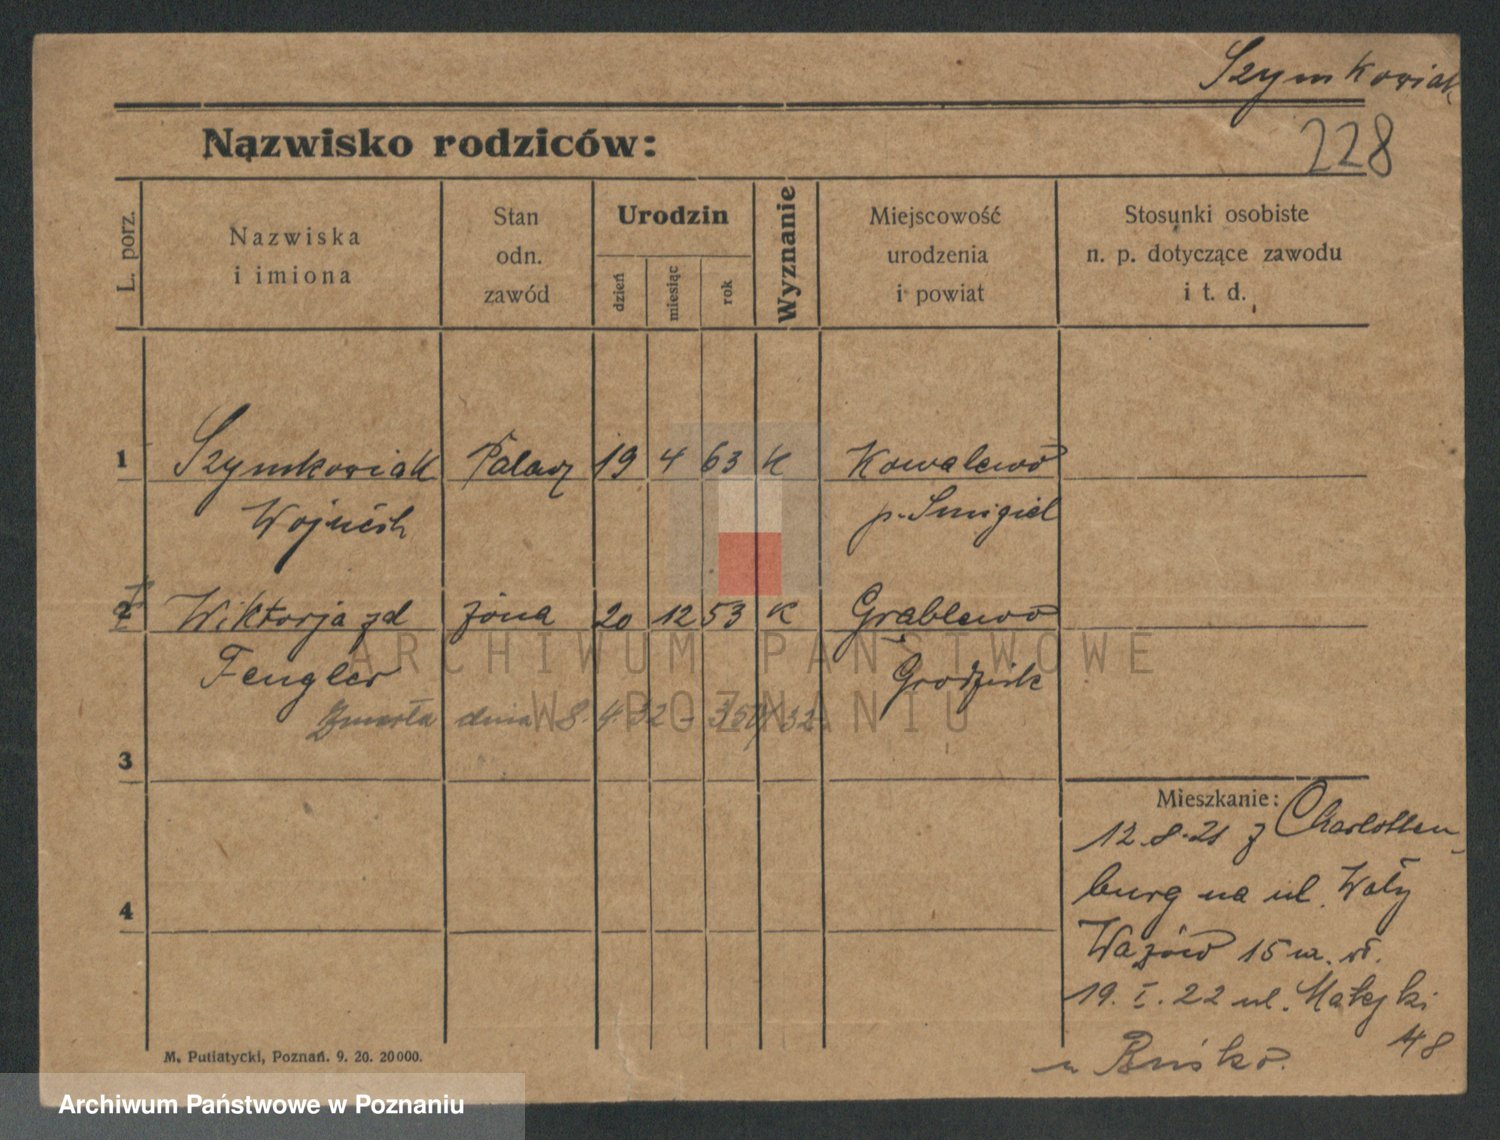 Szymkowiak
228
Nazwisko rodziców:
L. porz.
Nazwiska
i imiona
Stan
odn.
zawód
Urodzin
dzień
miesiąc
rok
Wyznanie
Miejscowość
urodzenia
i powiat
Stosunki osobiste
n. p. dotyczące zawodu
i t. d.
1 Szymkowiak Palacz 19 4 63 K Kowalewo
Wojciech p. Smigiel
2 Wiktorja zd żona 20 12 53 K Grablewo
Fengler Grodzisk
Zmarła dnia 8. 4 32 - 350/32
3
4
Mieszkanie:
12.8.21 z Charlotten-
burg na ul. Wały
Wazów 15
19. I. 22 ul. Matejki
48
M. Putiatycki, Poznań. 9. 20. 20000.
ARCHIWUM PAŃSTWOWE
W POZNANIU
Archiwum Państwowe w Poznaniu